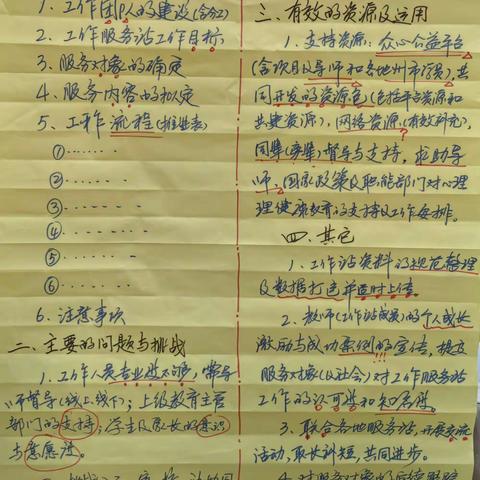 1. 工作团队的建设(含分工)
2. 工作服务站工作目标;
3. 服务对象的确定
4. 服务内容的拟定
5. 工作流程(推进表)
①……
②……
③……
④……
⑤……
⑥……
6. 注意事项
二、主要的问题与挑战
1. 工作人员专业性不够,需导
师督导(线上、线下);上级教育主管
部门的支持;学生及家长的意识
与意愿性。
三、有效的资源及运用
1. 支持资源:众心公益平台
(含项目及导师和各地州市污员),共
同开发的资源包(包括平台资源和
共建资源),网络资源(有效补充),
同辈(亲辈)督导与支持,求助导
师、国家政策及职能部门对心理
健康教育的支持及工作安排。
四、其它
1. 工作站资料的规范整理
及数据打包并适时上传
2. 教师(工作站成员)的个人成长
激励与成功案例的宣传,提高
服务对象(及社会)对工作服务站
工作的认可度和知名度。
3. 联合各地服务站,开展交流
活动,取长补短,共同进步。
4. 对服务对象的后续跟踪